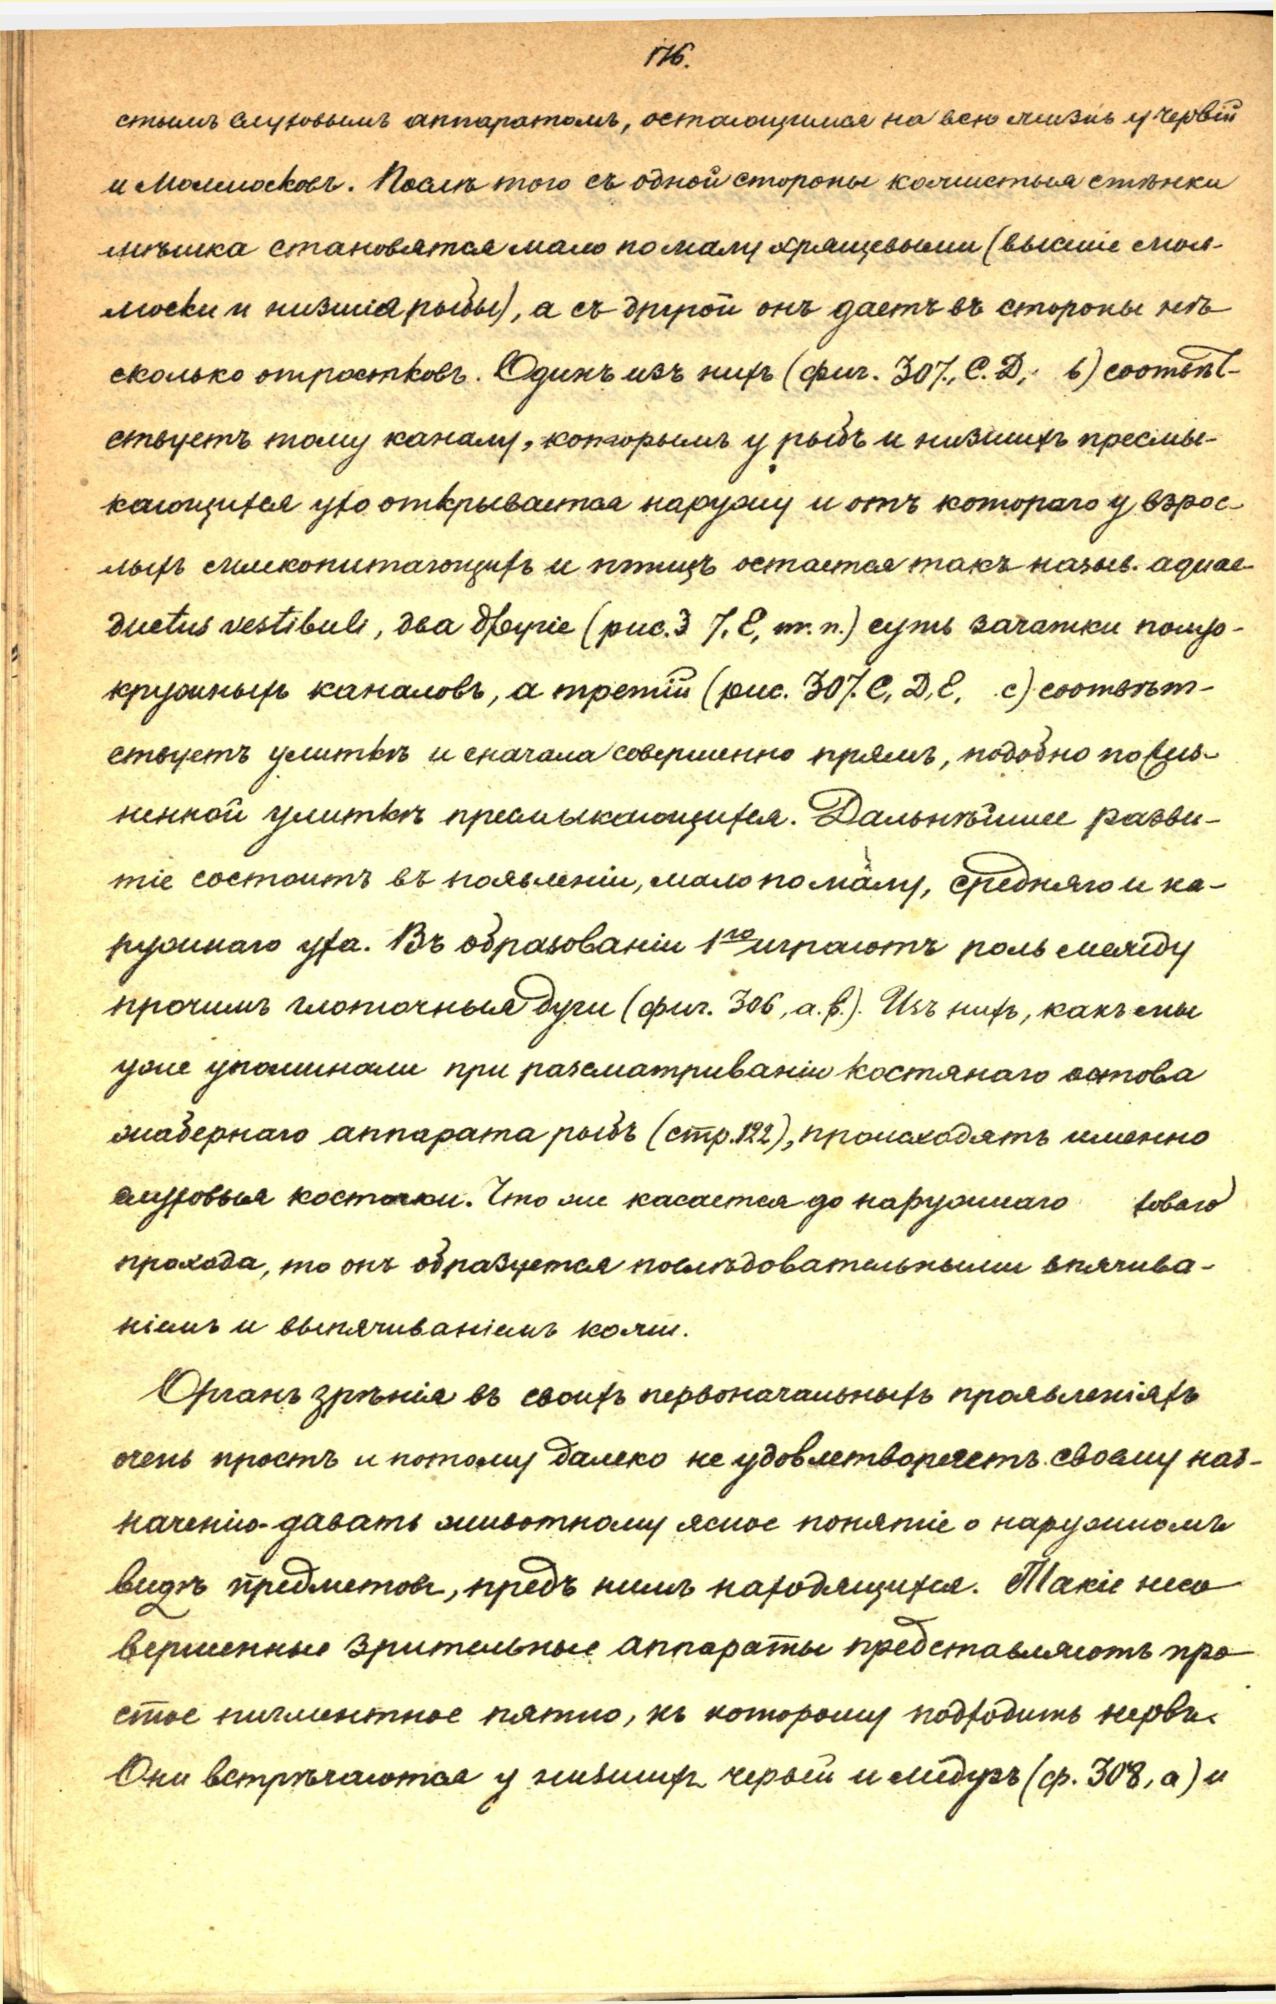 176.
стымъ слуховымъ аппаратомъ, остающимся на всю жизнь у червей
и Моллюсковъ. Послѣ того съ одной стороны кожистыя стѣнки
мѣшка становятся мало по малу хрящевыми (высшіе мол-
люски и низшія рыбы), а съ другой онъ даетъ въ стороны нѣ-
сколько отростковъ. Одинъ изъ нихъ (фиг. 307., С. D, b) соотвѣт-
ствуетъ тому каналу, которымъ у рыбъ и низшихъ пресмы-
кающихся ухо открывается наружу и отъ котораго у взрос-
лыхъ млекопитающихъ и птицъ остается такъ назыв. aquae
ductus vestibuli, два другіе (рис. 3 7, E, m. n.) суть зачатки полу-
кружныхъ каналовъ, а третій (рис. 307. C, D, E, c) соотвѣт-
ствуетъ улиткѣ и сначала совершенно прямъ, подобно пожиз-
ненной улиткѣ пресмыкающихся. Дальнѣйшее разви-
тіе состоитъ въ появленіи, мало по малу, средняго и на-
ружнаго уха. Въ образованіи 1го играютъ роль между
прочимъ глоточныя дуги (фиг. 306, a. b.). Изъ нихъ, какъ мы
уже упоминали при разсматриваніи костянаго остова
жабернаго аппарата рыбъ (стр. 122), происходятъ именно
слуховыя косточки. Что же касается до наружнаго ховаго
прохода, то онъ образуется послѣдовательными впячива-
ніемъ и выпячиваніемъ кожи.
Органъ зрѣнія въ своихъ первоначальныхъ проявленіяхъ
очень простъ и потому далеко не удовлетворяетъ своему наз-
наченію-давать животному ясное понятіе о наружномъ
видѣ предметовъ, предъ нимъ находящихся. Такіе несо
вершенные зрительные аппараты представляютъ про
стое пигментное пятно, къ которому подходитъ нервъ.
Они встрѣчаются у низшихъ червей и медузъ (ф. 308, a) и